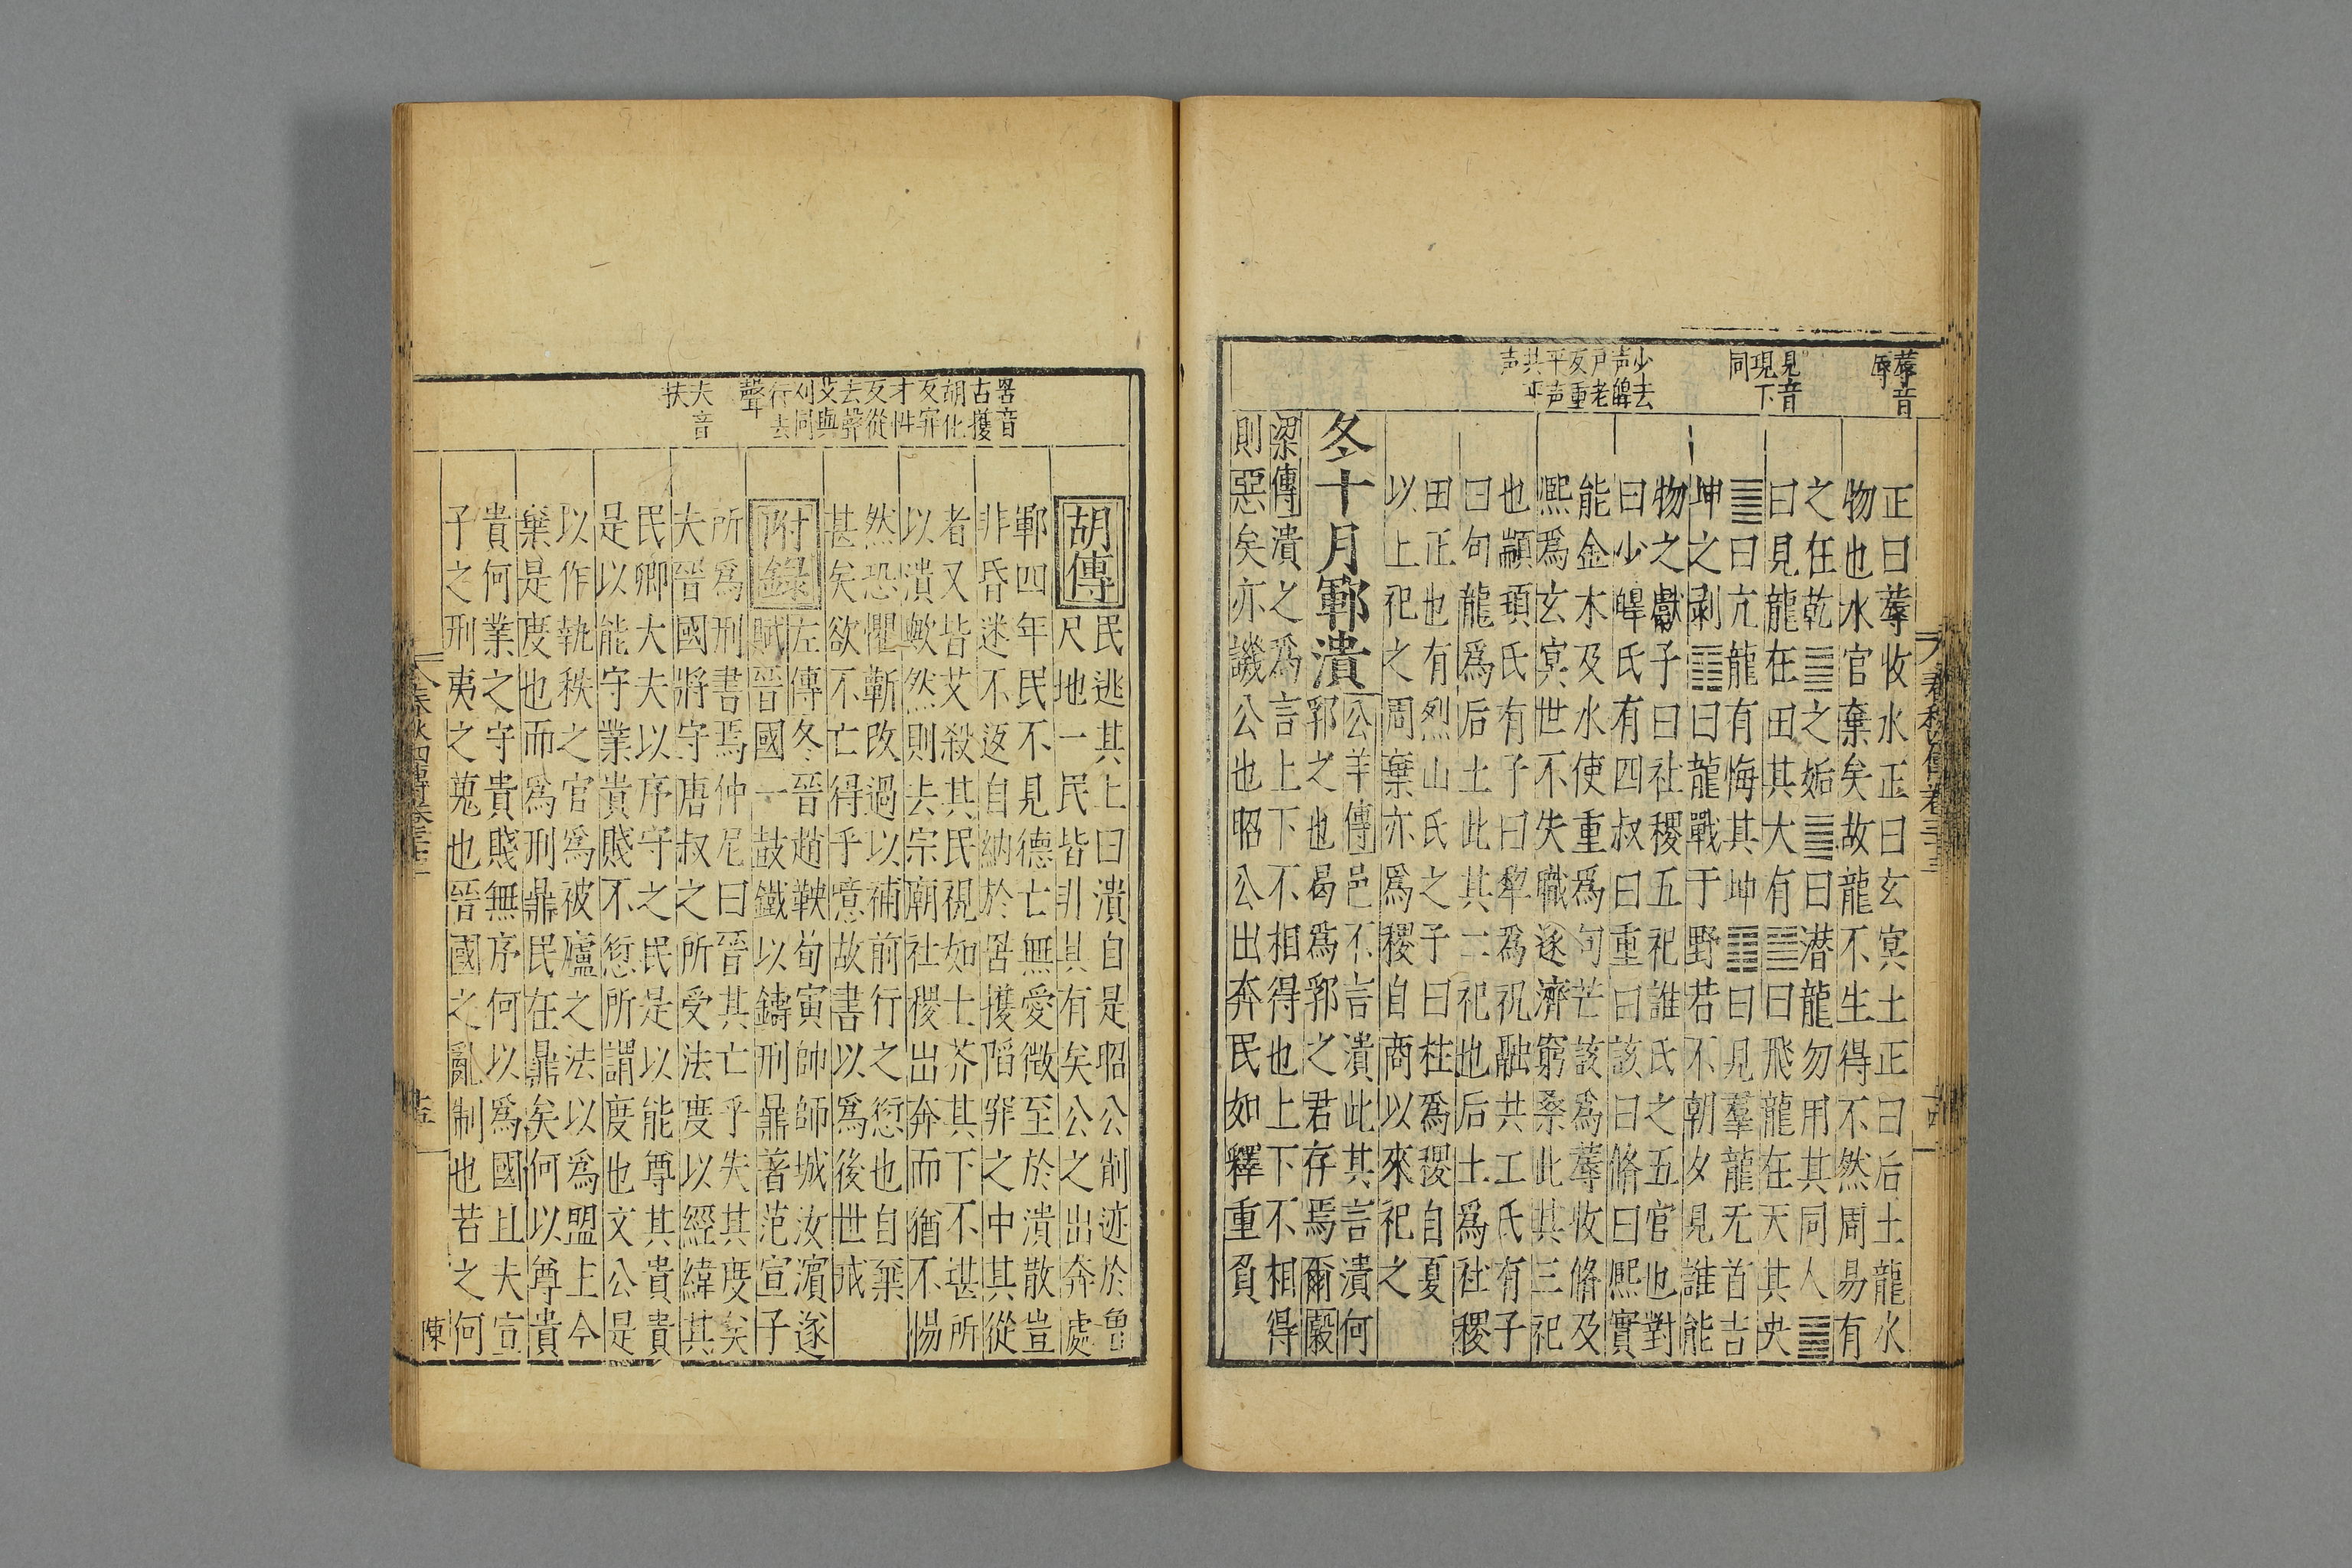 蓐音
辱
見音
現下
同
少去
声皥
戸老
反重
平声
共平
声
正曰蓐收水正曰玄冥土正曰后土龍水
物也水官棄矣故龍不生得不然周易有
之在乾䷀之姤䷫曰潛龍勿用其同人䷌
曰見龍在田其大有䷍曰飛龍在天其夬
䷪曰亢龍有悔其坤䷁曰見羣龍无首吉
坤之剥䷖曰龍戰于野若不朝夕見誰能
物之獻子曰社稷五祀誰氏之五官也對
曰少皥氏有四叔曰重曰該曰脩曰熙實
能金木及水使重爲句芒該爲蓐收脩及
熙爲玄冥世不失職遂濟窮桑此其三祀
也顓頊氏有子曰犂爲祝融共工氏有子
曰句龍爲后土此其二祀也后土爲社稷
田正也有烈山氏之子曰柱爲稷自夏
以上祀之周棄亦爲稷自商以來祀之
冬十月鄆潰
公羊傳邑不言潰此其言潰何
郛之也曷爲郛之君存焉爾 穀
梁傳潰之爲言上下不相得也上下不相得
則惡矣亦譏公也昭公出奔民如釋重負
春秋四傳卷三十三
十四
胡傳
民逃其上曰潰自是昭公削迹於魯
尺地一民皆非其有矣公之出奔處
鄆四年民不見德亡無愛徴至於潰散豈
非昏迷不返自納於罟擭䧟穽之中其從
者又皆艾殺其民視如土芥其下不堪所
以潰歟然則去宗廟社稷出奔而猶不惕
然恐懼蘄改過以補前行之愆也自棄
甚矣欲不亡得乎噫故書以爲後世戒
附錄
左傳冬晉趙鞅荀寅帥師城汝濵遂
賦晉國一鼓鐵以鑄刑鼎著范宣子
所爲刑書焉仲尼曰晉其亡乎失其度矣
夫晉國將守唐叔之所受法度以經緯其
民卿大夫以序守之民是以能尊其貴貴
是以能守業貴賤不愆所謂度也文公是
以作執秩之官爲被廬之法以爲盟主今
棄是度也而爲刑鼎民在鼎矣何以尊貴
貴何業之守貴賤無序何以爲國且夫宣
子之刑夷之蒐也晉國之亂制也若之何
罟音
古擭
胡化
反穽
才性
反從
去聲
艾與
刈同
行去
聲
夫音
扶
春秋四傳卷三十三
十五
陳